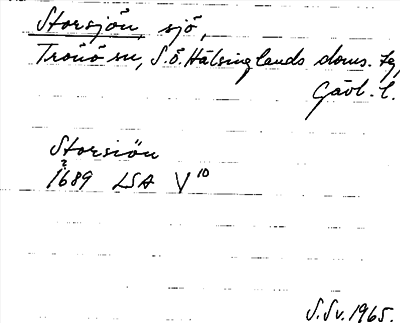 Storsjön, sjö,
Trönö sn, S.ö. Hälsinglands doms. tg,
Gävl. l.
Storsiön
?
1689 LSA V10
S.Sv. 1965.